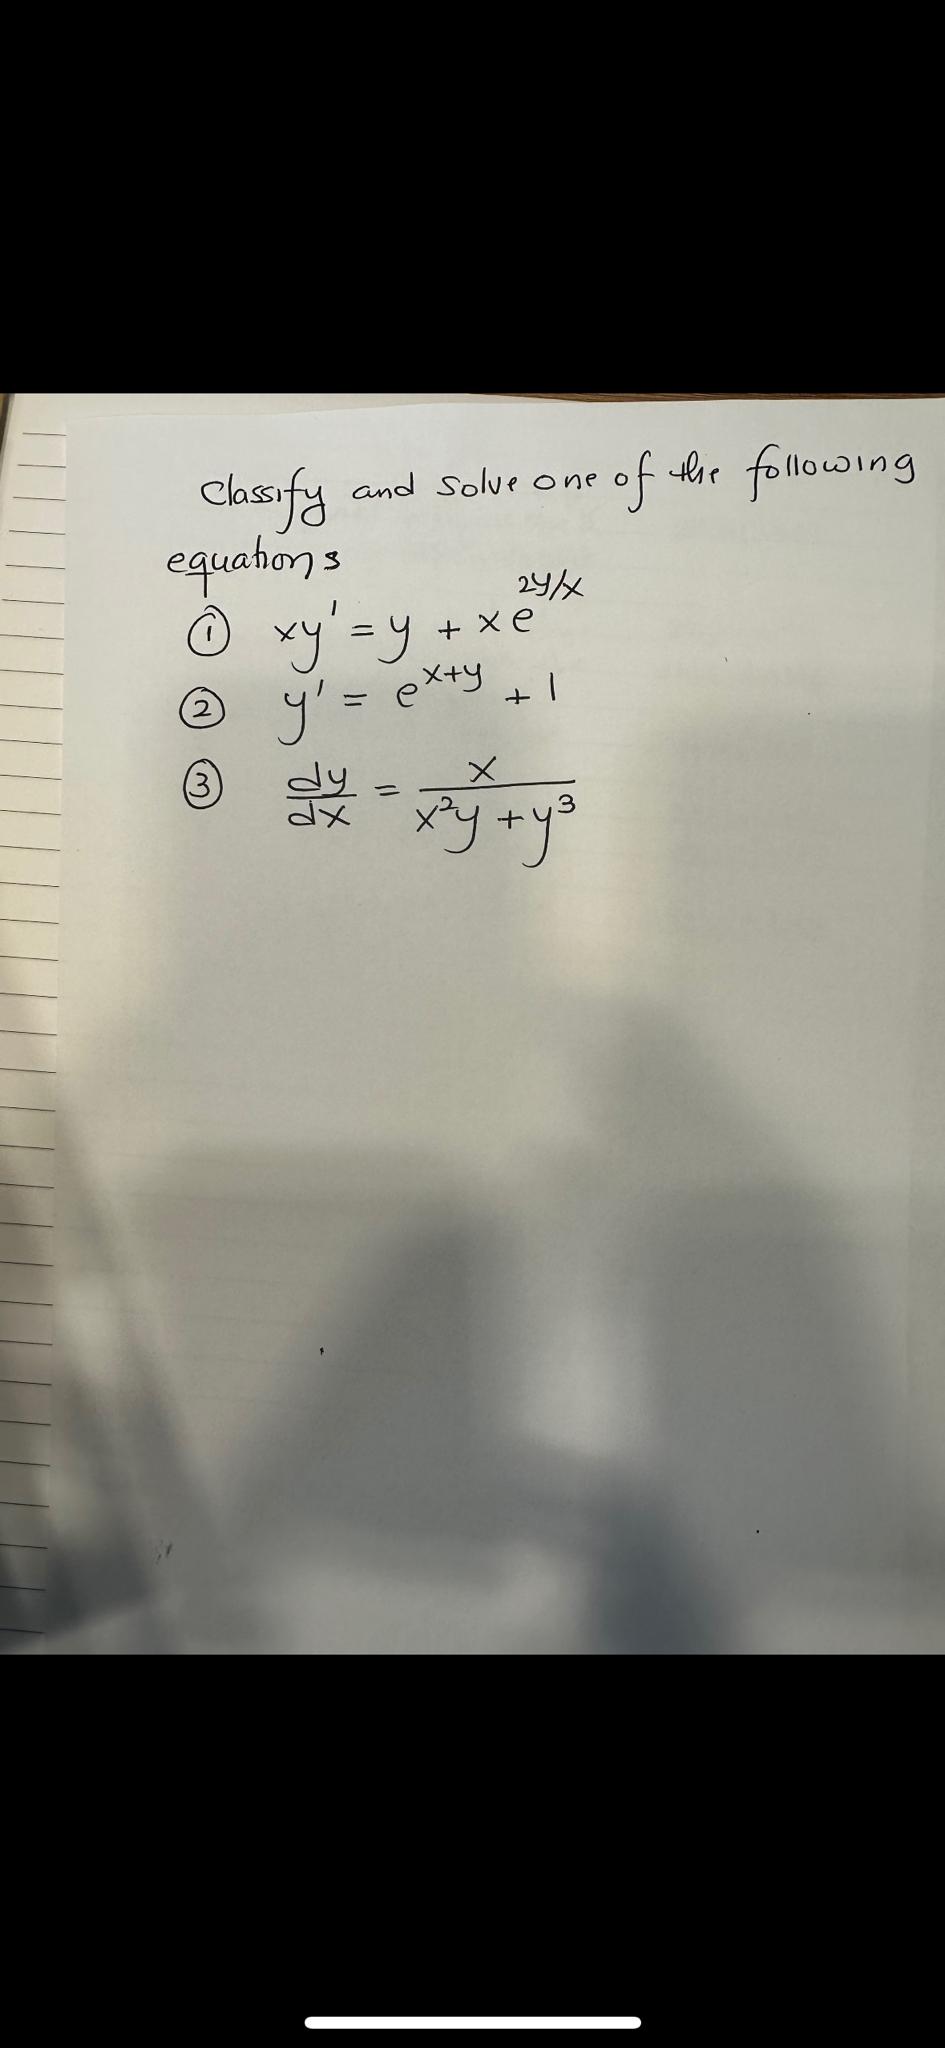 Classify and solve one of the following
equations
① xy' = y + xe^{2y/x}
② y' = e^{x+y} + 1
③ dy/dx = x/(x²y + y³)